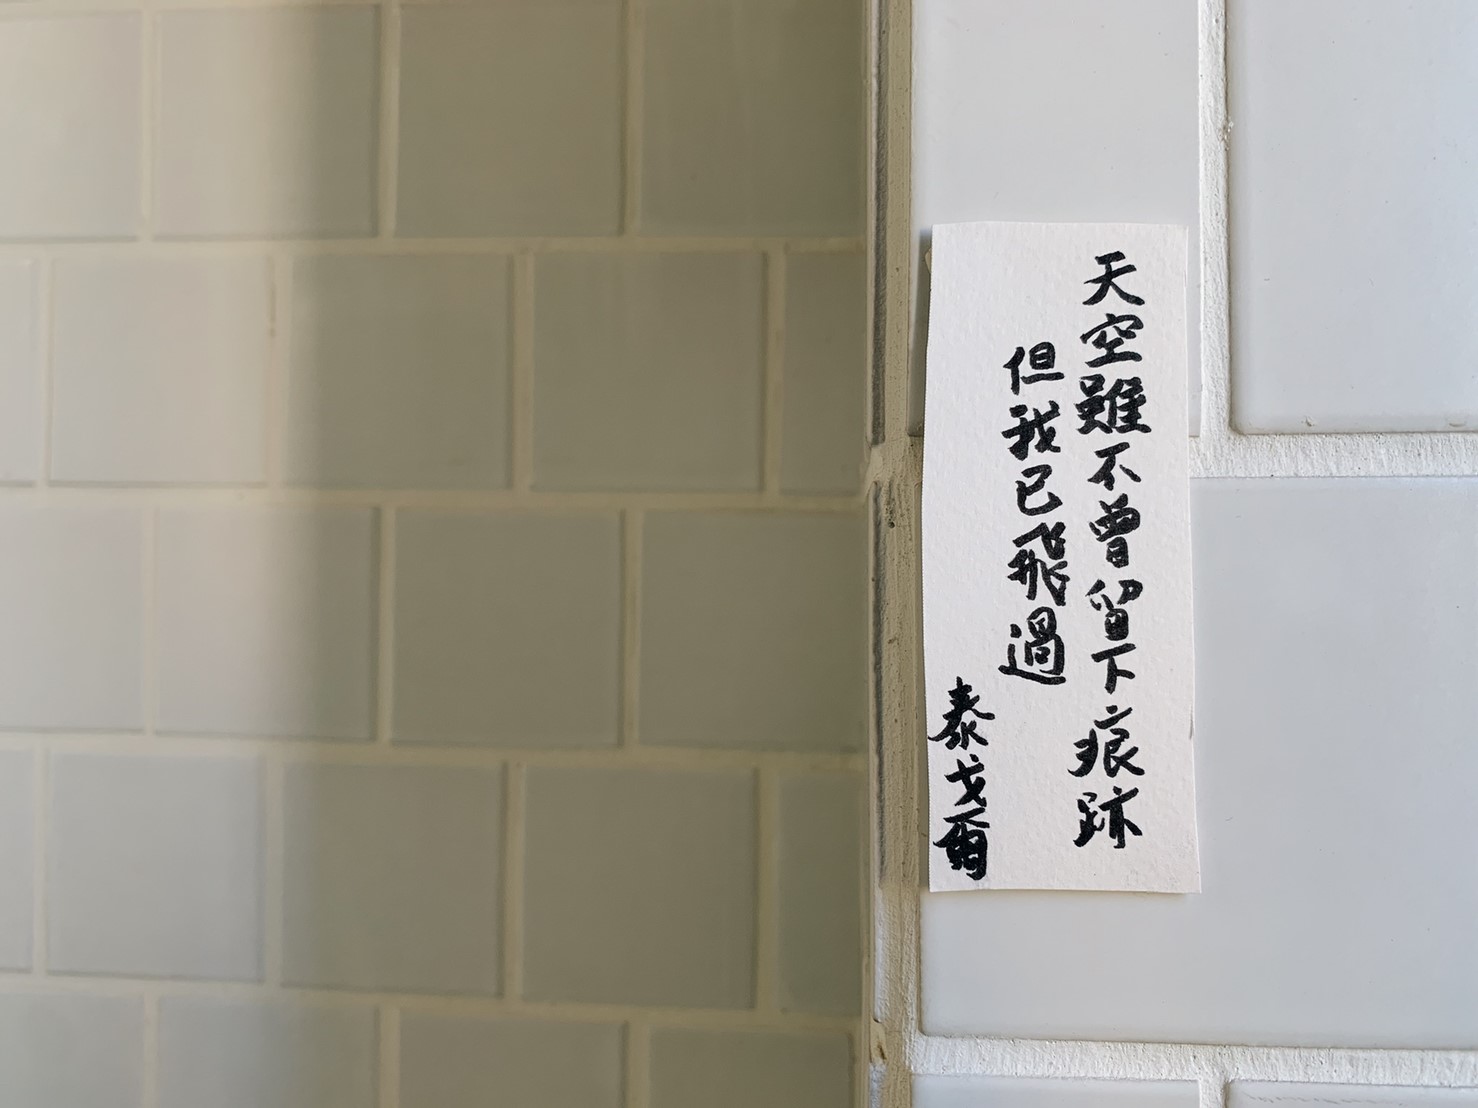 天空雖不曾留下痕跡
但我已飛過
泰戈爾